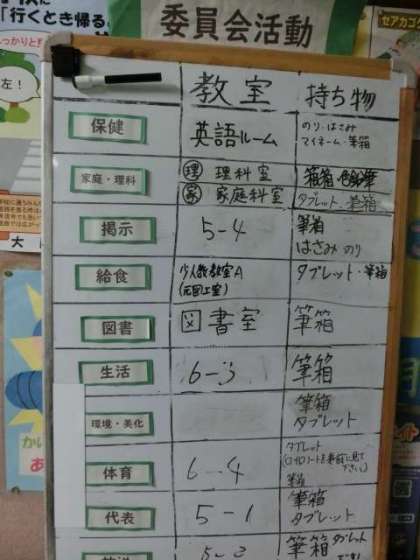 「行くとき帰る
委員会活動
セアカゴケ
左!
教室 持ち物
保健 英語ルーム のり・はさみ
マイネーム・筆箱
家庭・理科 理 理科室 筆箱
家 家庭科室 タブレット・筆箱
掲示 5-4 筆箱
はさみ のり
給食 少人数教室A タブレット・筆箱
(元図工室)
図書 図書室 筆箱
生活 6-3 筆箱
環境・美化 筆箱
タブレット
体育 6-4 タブレット
筆箱
代表 5-1 筆箱
タブレット
筆箱 タブレット